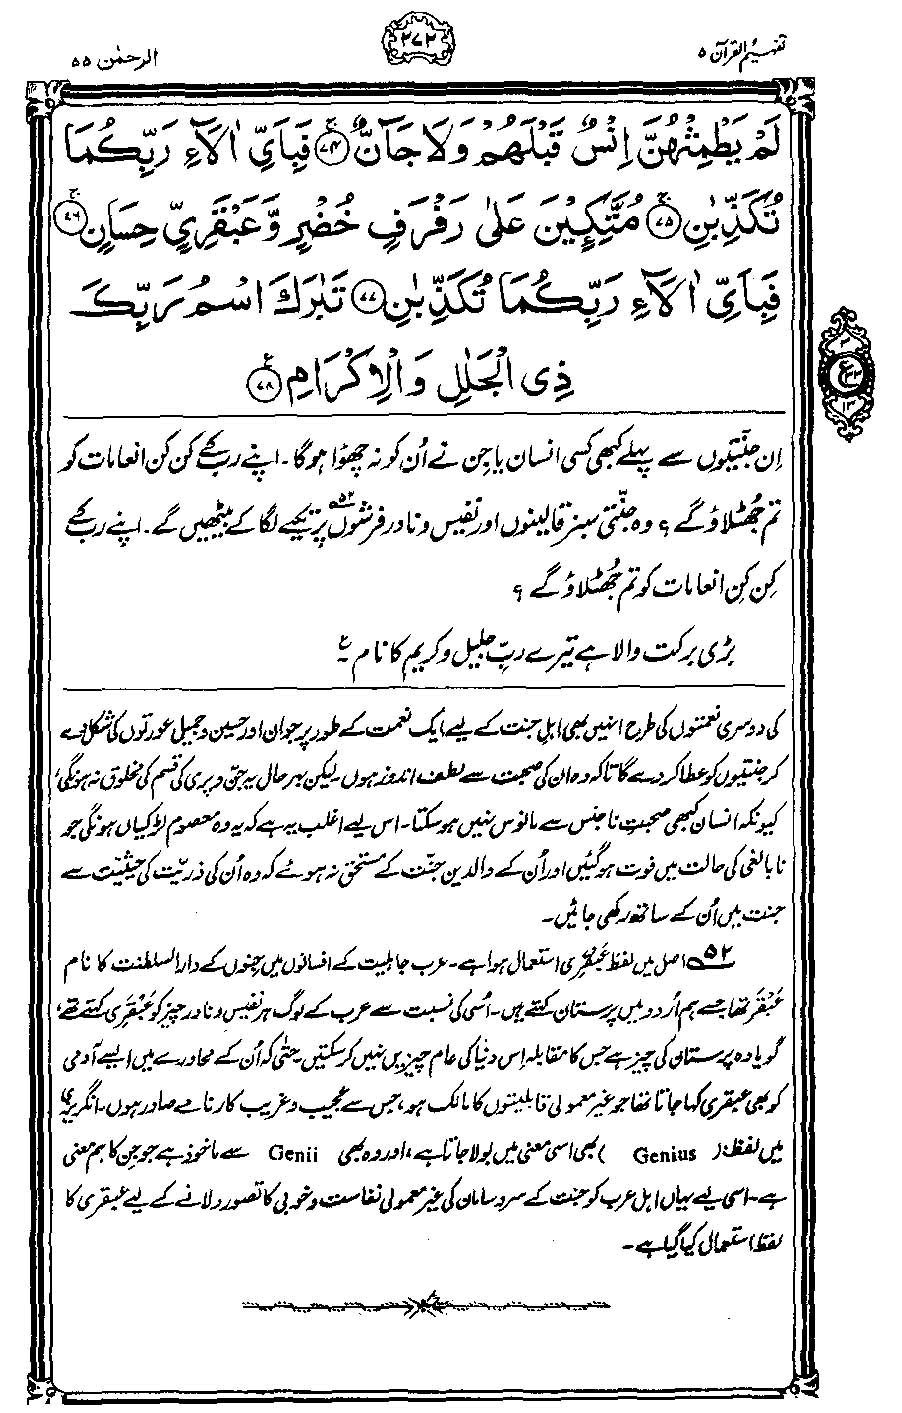 تفہیم القرآن ۵
۲۷۲
الرحمٰن ۵۵
لَمْ یَطْمِثْهُنَّ اِنْسٌ قَبْلَهُمْ وَلَا جَآنٌّ ﴿۷۴﴾ فَبِاَیِّ اٰلَآءِ رَبِّكُمَا
تُكَذِّبٰنِ ﴿۷۵﴾ مُتَّكِـِٕیْنَ عَلٰی رَفْرَفٍ خُضْرٍ وَّعَبْقَرِیٍّ حِسَانٍ ﴿۷۶﴾
فَبِاَیِّ اٰلَآءِ رَبِّكُمَا تُكَذِّبٰنِ ﴿۷۷﴾ تَبٰرَكَ اسْمُ رَبِّكَ
ذِی الْجَلٰلِ وَالْاِكْرَامِ ﴿۷۸﴾
ع
اِن جنّتیوں سے پہلے کبھی کسی انسان یا جِن نے اُن کو نہ چھوا ہوگا۔ اپنے رب کے کن کن انعامات کو
تم جھُٹلاؤ گے؟ وہ جنّتی سبز قالینوں اور نفیس و نادر فرشوں۵۲ پر تکیے لگا کے بیٹھیں گے۔ اپنے رب کے
کِن کِن انعامات کو تم جھُٹلاؤ گے؟
بڑی برکت والا ہے تیرے ربِّ جلیل و کریم کا نام۔ ع
کی دوسری نعمتوں کی طرح انہیں بھی اہلِ جنت کے لیے ایک نعمت کے طور پر جوان اور حسین و جمیل عورتوں کی شکل دے
کر جنتیوں کو عطا کر دے گا تاکہ وہ ان کی صحبت سے لطف اندوز ہوں۔ لیکن بہرحال یہ جن و پری کی قسم کی مخلوق نہ ہونگی،
کیونکہ انسان کبھی صحبتِ ناجنس سے مانوس نہیں ہو سکتا۔ اس لیے اغلب یہ ہے کہ یہ وہ معصوم لڑکیاں ہونگی جو
نابالغی کی حالت میں فوت ہوگئیں اور اُن کے والدین جنّت کے مستحق نہ ہوئے کہ وہ اُن کی ذریّت کی حیثیت سے
جنت میں اُن کے ساتھ رکھی جائیں۔
۵۲ اصل میں لفظ عَبْقَرِی استعمال ہوا ہے۔ عرب جاہلیت کے افسانوں میں جِنوں کے دارالسلطنت کا نام
عَبْقَر تھا جسے ہم اُردو میں پرستان کہتے ہیں۔ اُسی کی نسبت سے عرب کے لوگ ہر نفیس و نادر چیز کو عَبْقَری کہتے تھے،
گویا وہ پرستان کی چیز ہے جس کا مقابلہ اِس دنیا کی عام چیزیں نہیں کر سکتیں۔ حتٰی کہ اُن کے محاورے میں ایسے آدمی
کو بھی عبقری کہا جاتا تھا جو غیر معمولی قابلیتوں کا مالک ہو، جس سے عجیب و غریب کارنامے صادر ہوں۔ انگریزی
میں لفظ ( Genius ) بھی اسی معنی میں بولا جاتا ہے، اور وہ بھی Genii سے ماخوذ ہے جو جِن کا ہم معنی
ہے۔ اسی لیے یہاں اہل عرب کو جنت کے سروسامان کی غیر معمولی نفاست و خوبی کا تصور دلانے کے لیے عبقری کا
لفظ استعمال کیا گیا ہے۔